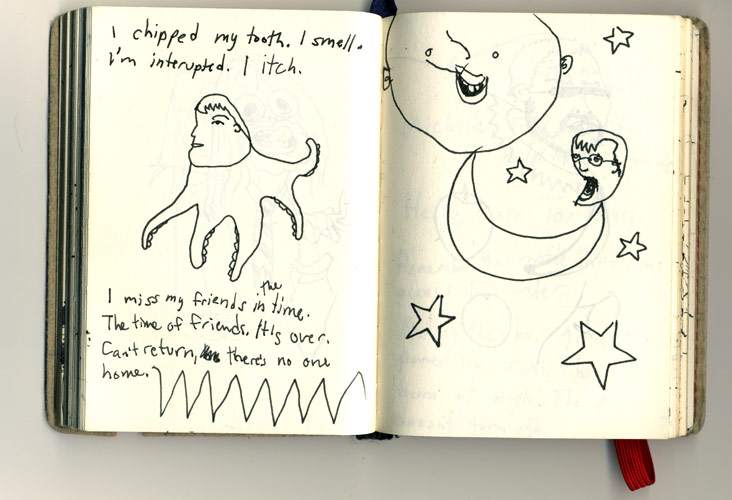 I chipped my tooth. I smell.
I'm interupted. I itch.
I miss my friends in the time.
The time of friends. It is over.
Can't return, there's no one
home.